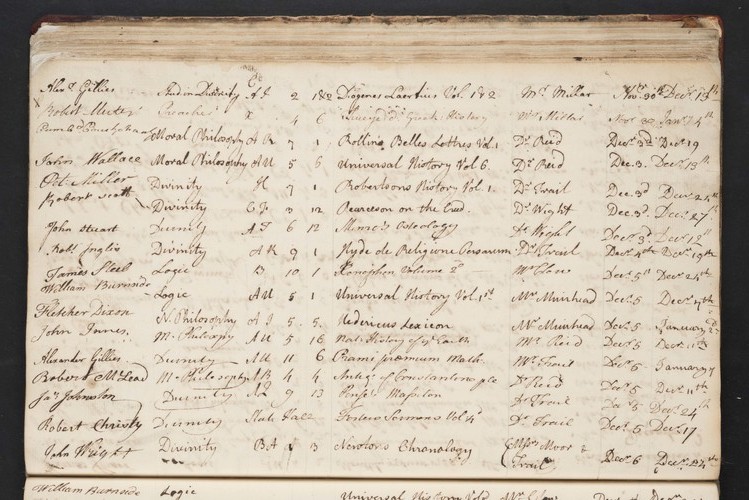 Alexr Gillies Stud in Divinity A I 2 1&2 Diogenes Laertius Vol. 1 & 2 Mr. Millar Nov. 30th Decr. 13th
Robert Muter Preacher 4 6 Greek History Mr Millar Nov 30 Janr. 24th
Moral Philosophy A R 7 1 Rollins Belles Lettres Vol. 1 Dr. Reid Decr. 3d Decr. 19
James Wallace Moral Philosophy A U 5 6 Universal History Vol 6. Dr. Reid Dec. 3. Decr. 13th
Pet. Miller Divinity H 7 1 Robertsons History Vol. 1. Dr. Trail Dec. 3d Decr. 24th
Robert Scott Divinity C F 3 12 Pearceson on the Cred. Dr. Wight Dec. 3d. Decr. 27th
John Stuart Divinity A I 6 12 Monro's Osteology Dr Wight Decr. 3d. Decr. 12th
Robt. Inglis Divinity A R 9 1 Hyde de Religione Persarum Dr. Trail Decr. 4th Decr. 19th
James Steel Logic B 10 1 Xenophon Volume 2d Mr Clow Decr. 5th Decr. 24th
William Burnside Logic A U 5 1 Universal History Vol. 1st Mr. Muirhead Decr. 5
Fletcher Dixon N. Philosophy A I 5 5. Hedericus Lexicon Mr. Muirhead Decr. 5 January
John Innes M. Philosophy A U 5 16 Nat. History of ye Earth Mr. Reid Decr. 5 Decr. 11th
Alexander Gillies Divinity A U 11 6 Mr. Trail Decr. 5 January
Robert McLead M. Philosophy A B 4 4 Antiq. of Constantinople Dr Reid Decr. 5 Decr. 11th
Jas. Johnston Divinity 9 13 Massilon Dr. Trail Dec. 5 Decr. 24th
Robert Christy Divinity Sermons Vol 4th Dr. Trail Decr. 5 Decr. 17
John Wright Divinity B A 1 3 Newtons Chronology Messrs Moor & Trail Decr. 6 Decr.
William Burnside Logic Universal History Vol. 2d Mr Clow